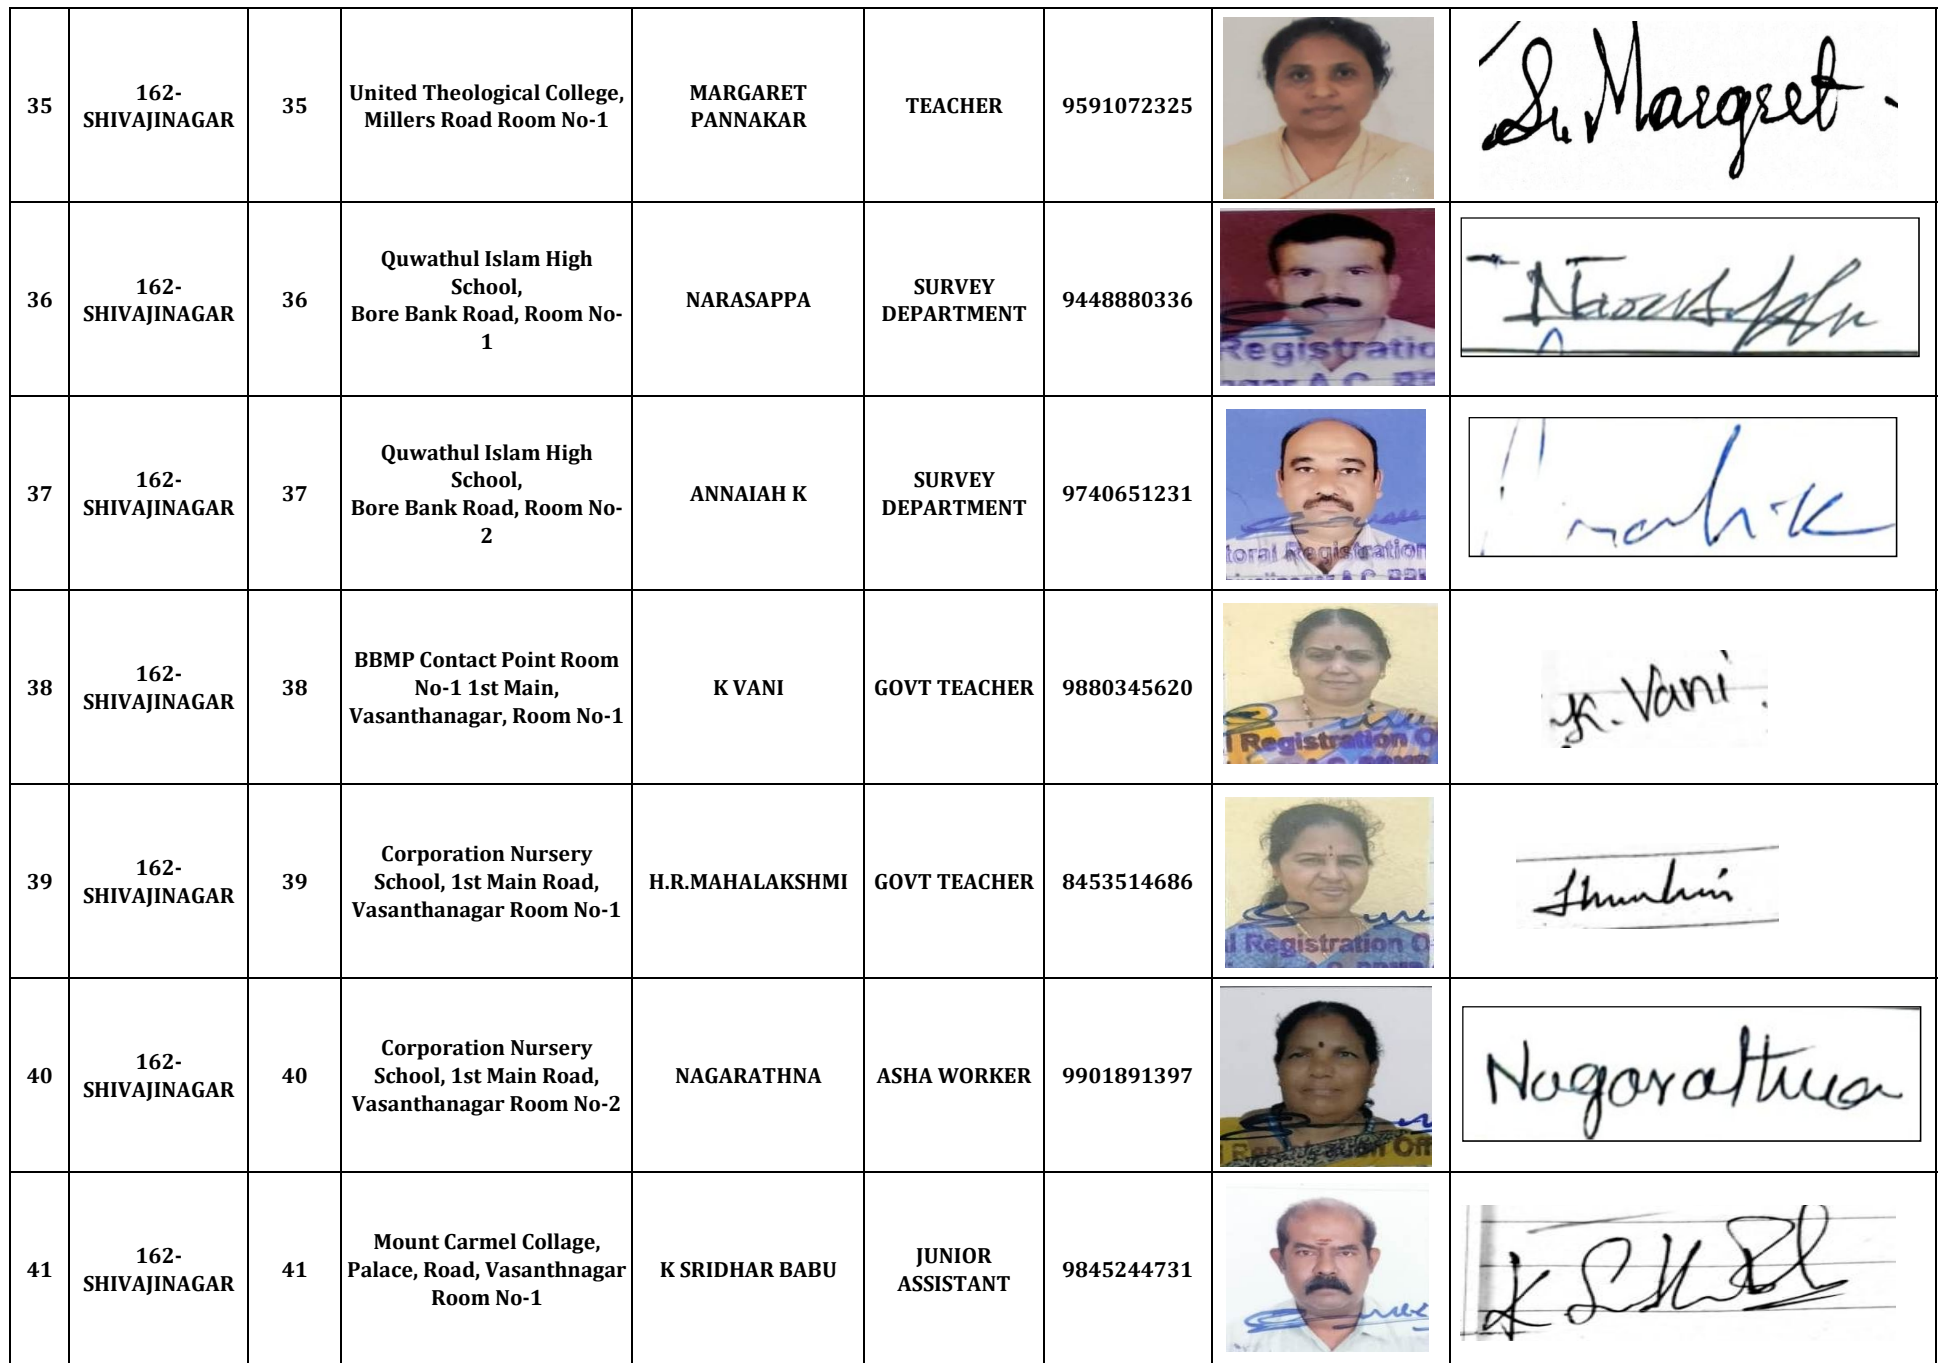 35
162-
SHIVAJINAGAR
35
United Theological College,
Millers Road Room No-1
MARGARET
PANNAKAR
TEACHER
9591072325
Sr. Margret.
36
162-
SHIVAJINAGAR
36
Quwathul Islam High
School,
Bore Bank Road, Room No-
1
NARASAPPA
SURVEY
DEPARTMENT
9448880336
Registratio
37
162-
SHIVAJINAGAR
37
Quwathul Islam High
School,
Bore Bank Road, Room No-
2
ANNAIAH K
SURVEY
DEPARTMENT
9740651231
toral Registration
38
162-
SHIVAJINAGAR
38
BBMP Contact Point Room
No-1 1st Main,
Vasanthanagar, Room No-1
K VANI
GOVT TEACHER
9880345620
l Registration O
K. Vani.
39
162-
SHIVAJINAGAR
39
Corporation Nursery
School, 1st Main Road,
Vasanthanagar Room No-1
H.R.MAHALAKSHMI
GOVT TEACHER
8453514686
l Registration O
40
162-
SHIVAJINAGAR
40
Corporation Nursery
School, 1st Main Road,
Vasanthanagar Room No-2
NAGARATHNA
ASHA WORKER
9901891397
Nagarathna
41
162-
SHIVAJINAGAR
41
Mount Carmel Collage,
Palace, Road, Vasanthnagar
Room No-1
K SRIDHAR BABU
JUNIOR
ASSISTANT
9845244731